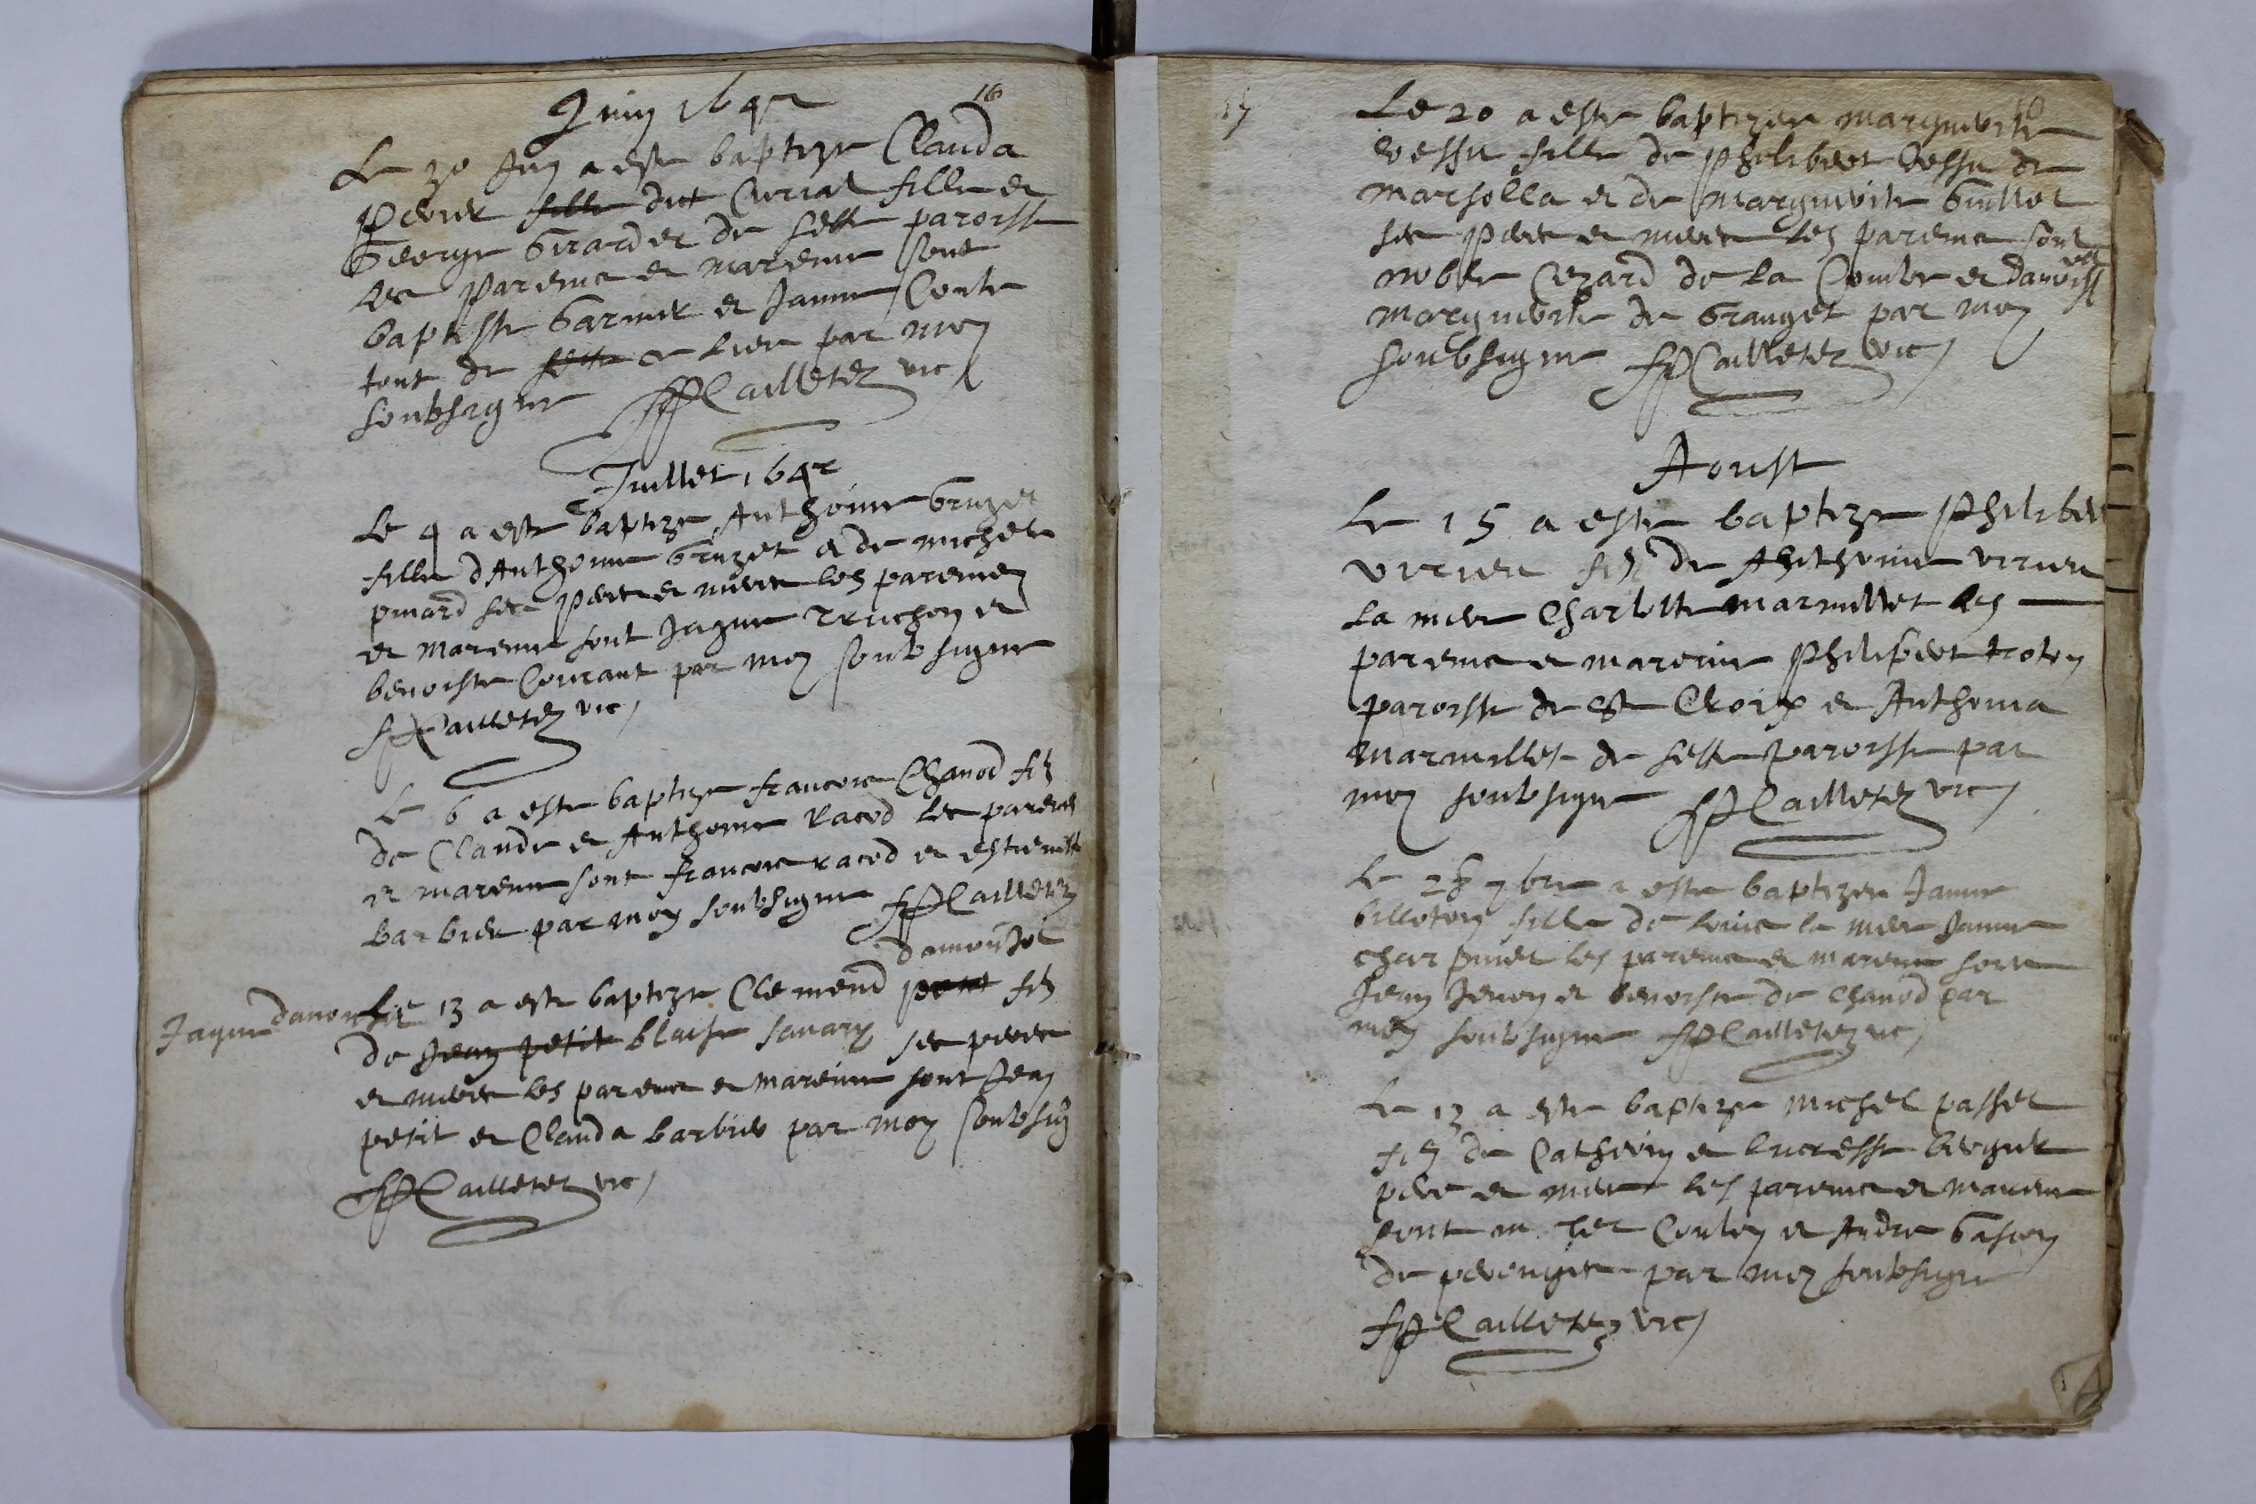 16
Juin 1642
Le 30 Juin a este baptize Clauda
Perier fille dict Curial fille et
George Girardet de sette paroisse
les pareins et mareine sont
baptiste Garnier et Janne Conte
tout de sette ce lieu par moy
soubsigne FPCailletez vic
Juillet 1642
Le 4 a este baptize Anthoine Gruzet
fille d'Anthoine Gruzet et de michele
pinard ses pere et mere les pareine
et mareine sont Jaque Truchon et
benoiste Courant par moy soubsigne
FPCailletez vic
Le 6 a este baptize francois Chanod filz
de Claude et Anthoine Racod les pareins
et mareine sont francois racod et estiennette
barbier par moy soubsigne FPCailletez
damonJel
Jaque damon Le 13 a este baptize Clemend petit filz
de Jean petit blaise sauary ses peres
et meres les pareins et mareine sont Jean
petit et Clauda barbier par moy soubsig
FPCailletez vic
17
Le 20 a este baptizee marguerite
vessu fille de Philibert vessu de
marsolla et de marguerite Guillot
ses pere et mere les pareins sont
noble Cezard de la Coudre et Damoiselle
marguerite de Granget par moy
soubsigne FPCailletez vic
Aoust
Le 15 a este baptize Philiber
virieu filz de Anthoine virieu
la mere Charlotte marmillet les
pareins et mareine Philibert troton
paroisse de Ste Croix et Anthoina
marmillet de sette paroisse par
moy soubsigne FPCailletez vic
Le 28 7bre a este baptizee Janne
billoton fille de Louis la mere Janne
charpinet les pareins et mareine sont
Jean Jenon et benoiste de Chanod par
moy soubsigne FPCailletez vic
Le 13 a este baptize michel passet
filz de Catherin et lucresse berguer
pere et mere les pareins et mareine
sont m Coulon et Andre Gascon
de peronges par moy soubsigne
FPCailletez vic